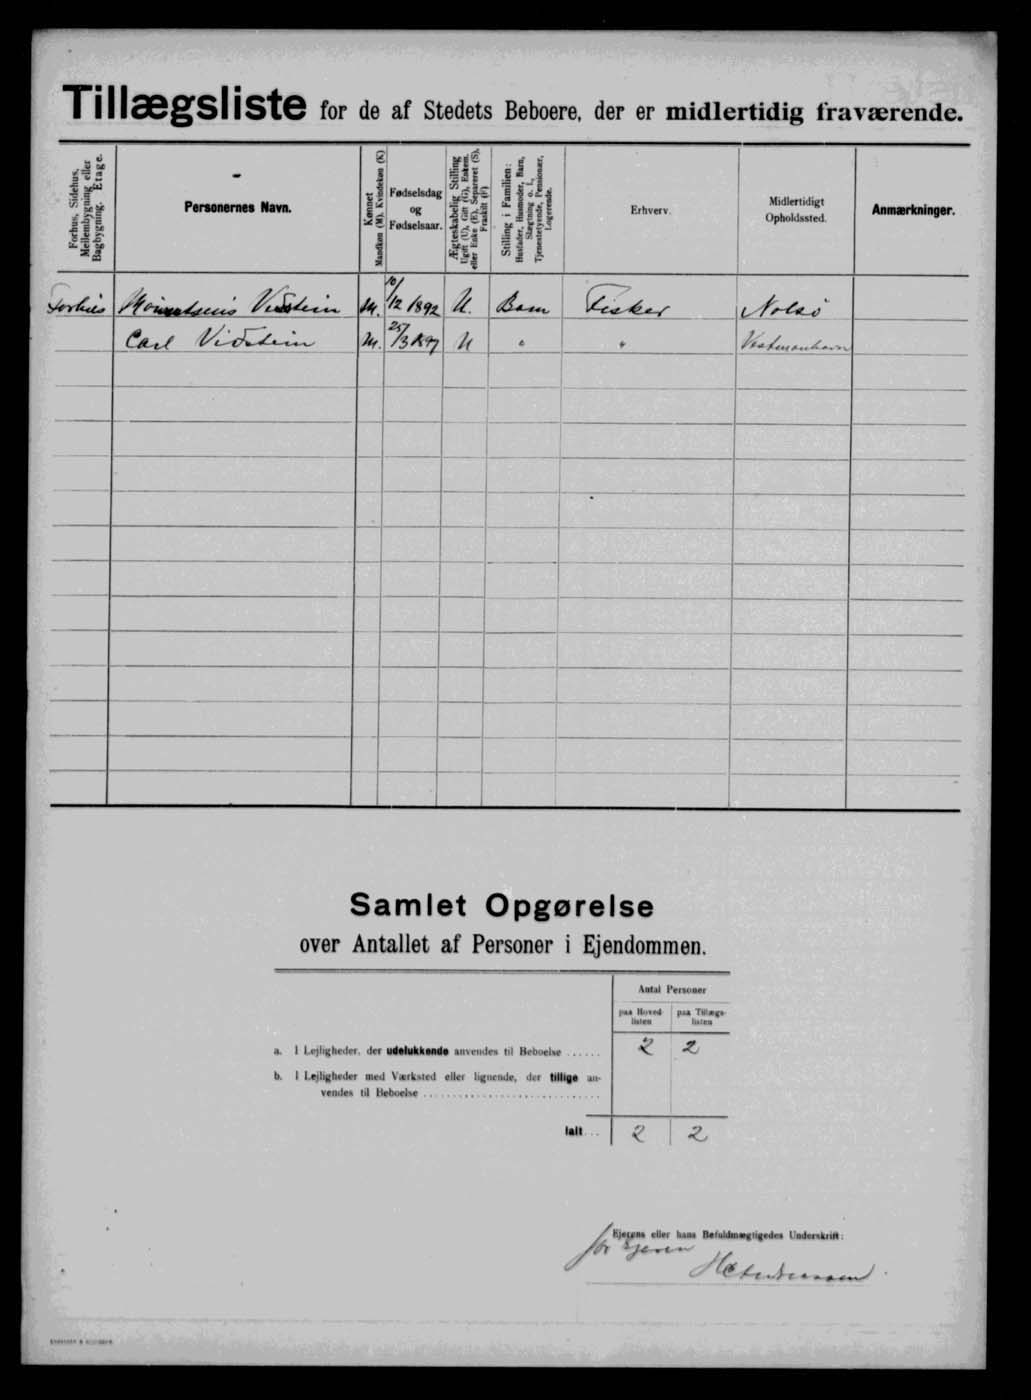 Tillægsliste for de af Stedets Beboere, der er midlertidig fraværende.
Forhus, Sidehus, Mellembygning eller Bagbygning. Etage.
Personernes Navn.
Kønnet Mandkøn (M), Kvindekøn (K)
Fødselsdag og Fødselsaar.
Ægteskabelig Stilling Ugift (U), Gift (G), Enkem. eller Enke (E), Separeret (S), Fraskilt (F)
Stilling i Familien: Husfader, Husmoder, Barn, Slægtning o. l., Tjenestetyende, Pensionær, Logerende.
Erhverv.
Midlertidigt Opholdssted.
Anmærkninger.
Forhus Vidstein M. 10/12 1892 U. Barn Fisker Nolsö
Carl Vidstein M. 25/3 1897 U " " Vestmanhavn
Samlet Opgørelse
over Antallet af Personer i Ejendommen.
Antal Personer
paa Hoved-listen
paa Tillægs-listen
a. I Lejligheder, der udelukkende anvendes til Beboelse ...... 2 2
b. I Lejligheder med Værksted eller lignende, der tillige an-
vendes til Beboelse
Ialt... 2 2
Ejerens eller hans Befuldmægtigedes Underskrift:
for Ejeren